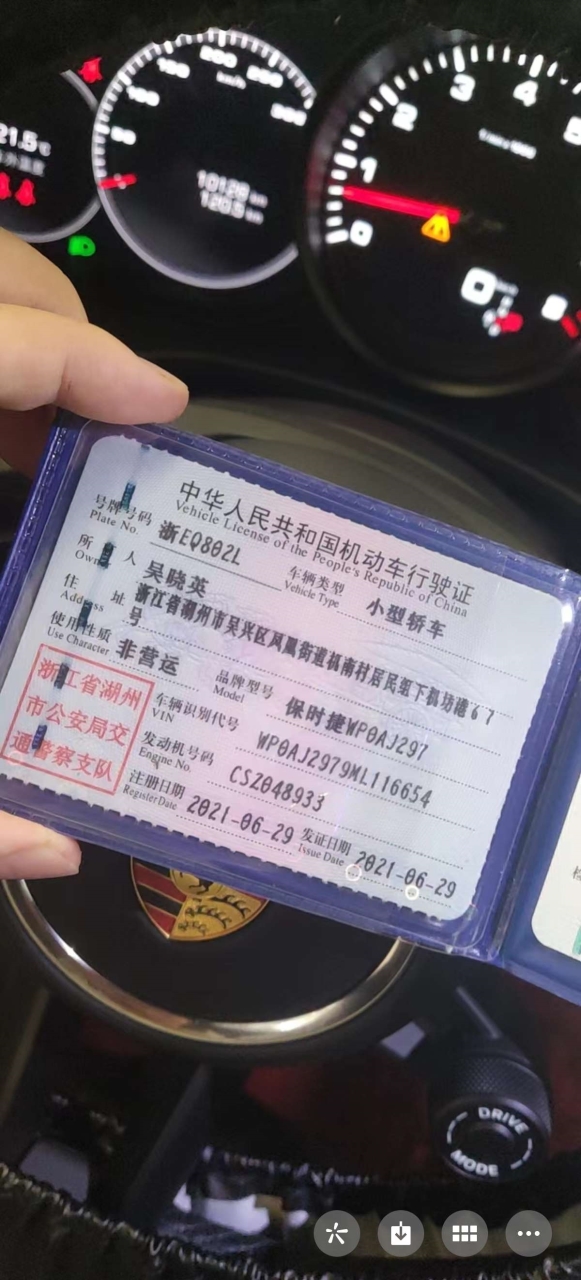 21.5°C
50
100
150
200
250
300
km/h
10128 km
120.5 km
0
1
2
3
4
5
中华人民共和国机动车行驶证
Vehicle License of the People's Republic of China
号牌号码 浙EQ802L 车辆类型 小型轿车
Plate No. Vehicle Type
所有人 吴晓英
Owner
住址 浙江省湖州市吴兴区凤凰街道
Address
号
使用性质 非营运 品牌型号 保时捷WP0AJ297
Use Character Model
浙江省湖州
市公安局交
通警察支队
车辆识别代号 WP0AJ2979ML116654
VIN
发动机号码 CSZ048933
Engine No.
注册日期 2021-06-29 发证日期 2021-06-29
Register Date Issue Date
DRIVE
MODE